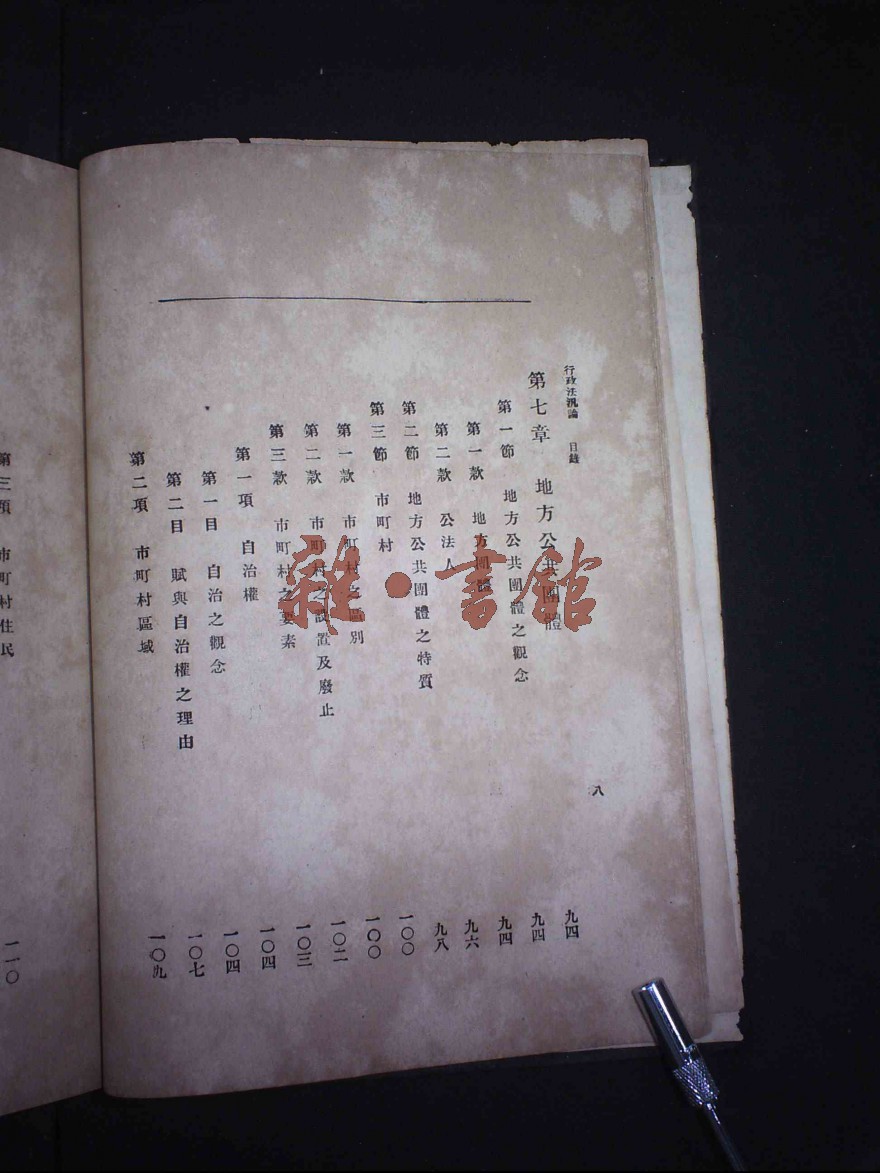 行政法汎論 目錄
八
第七章 地方公共團體 九四
第一節 地方公共團體之觀念 九四
第一款 地方團體 九四
第二款 公法人 九六
第二節 地方公共團體之特質 九八
第三節 市町村 一〇〇
第一款 市町村之區別 一〇〇
第二款 市町村之設置及廢止 一〇二
第三款 市町村之要素 一〇三
第一項 自治權 一〇四
第一目 自治之觀念 一〇四
第二目 賦與自治權之理由 一〇七
第二項 市町村區域 一〇九
第三項 市町村住民 一一〇
雜·書館